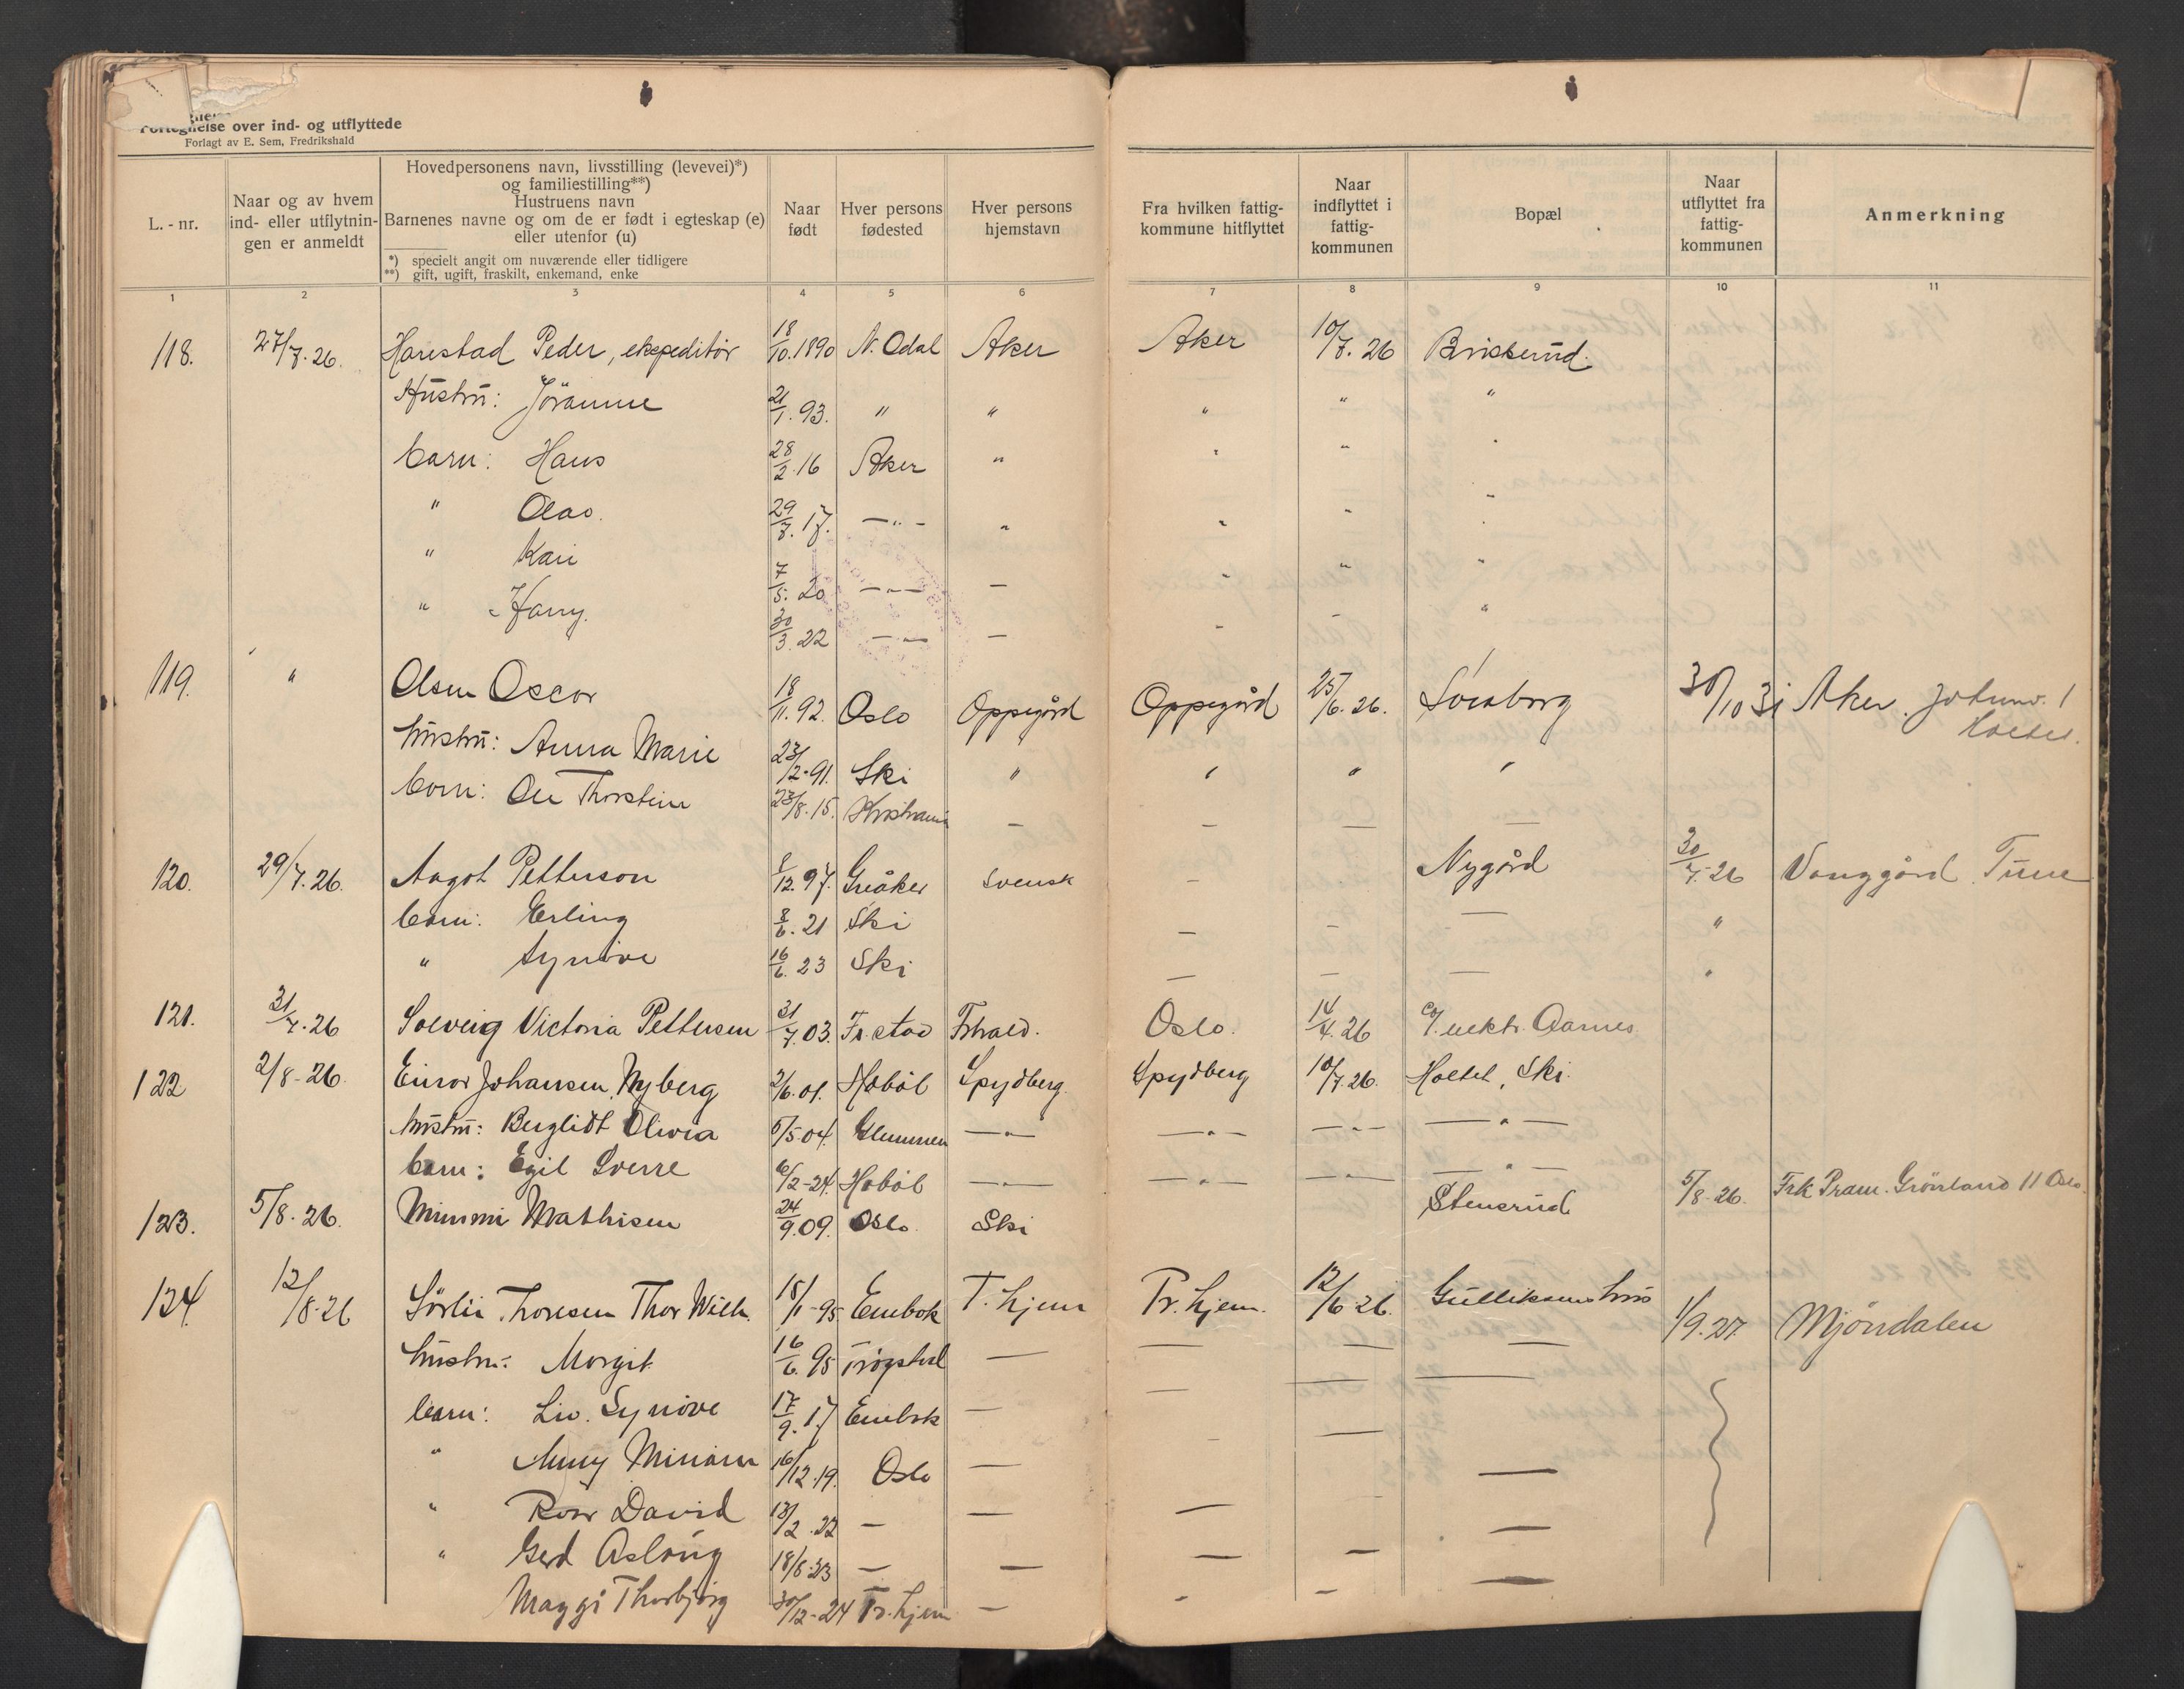 Fortegnelse over ind- og utflyttede
Forlagt av E. Sem, Fredrikshald
L. - nr.
Naar og av hvem ind- eller utflytningen er anmeldt
Hovedpersonens navn, livsstilling (levevei)*)
og familiestilling**)
Hustruens navn
Barnenes navne og om de er født i egteskap (e)
eller utenfor (u)
*) specielt angit om nuværende eller tidligere
**) gift, ugift, fraskilt, enkemand, enke
Naar født
Hver persons fødested
Hver persons hjemstavn
Fra hvilken fattigkommune hitflyttet
Naar indflyttet i fattigkommunen
Bopæl
Naar utflyttet fra fattigkommunen
Anmerkning
1 2 3 4 5 6 7 8 9 10 11
118. 27/7.26. Harestad Peder, ekspeditör 18/10.1890 N. Odal Aker Aker 10/7.26 Brisserud.
Hustru: Jöranne 21/1.93. " " " " "
barn: Hans 28/2.16 Aker " " "
" Olav. 29/7.17. — " — " " "
" Kari 7/5.20 — " — — " " "
" Harry. 30/3.22 — " — — - - "
119. " Olsen Oscar 18/11.92. Oslo Oppegård Oppegård 25/6.26. Solborg 30/10 31 Aker.
Hustru: Anna Marie 23/12.91. Ski " " " "
barn: Ole Thorstein 23/8.15. Kristiania — — — —
120. 29/7.26. Aagot Petterson 8/12.97. Greåker Svensk — Nygård 30/7.26 Vanggård Tune
barn: Erling 8/6.21 Ski — — — "
" Synöve 16/6.23 Ski — — — "
121. 31/7.26 Solveig Victoria Pettersen 31/7.03. Fr.stad Frhald. Oslo. 14/4.26 c/o. elektr. Aarnes
122 2/8-26. Einar Johansen Nyberg 2/6.01. Hobøl Spydberg. Spydberg 10/7.26. Holtet, Ski.
Hustru: Berglidt Olivia 5/5 04. Glemmen — " — — " — — " — — " —
barn: Egil Sverre 6/2-24. Hobøl — " — — " — — " — — " —
123. 5/8.26. Mimmi Mathisen 24/9.09. Oslo. Ski Stensrud 5/8-26. Frk Pram. Grönland 11 Oslo.
124. 12/8-26 Sörlie Thoresen Thor Wilh. 15/1-95 Enebak T. hjem Tr. hjem. 12/6 26. Gulliksens hus 1/9.27. Mjöndalen
Hustru: Margit 16/6.95 Trøgstad — — — —
barn: Liv. Synöve 17/9.17 Enebak — — — —
" Anny Miriam 16/12.19. Oslo — - — —
" Roar David 13/2.22 — — — —
" Gerd Aslaug 18/8-23 — — — — —
Maggi Thorbjørg 30/12-24 Tr. hjem — - —